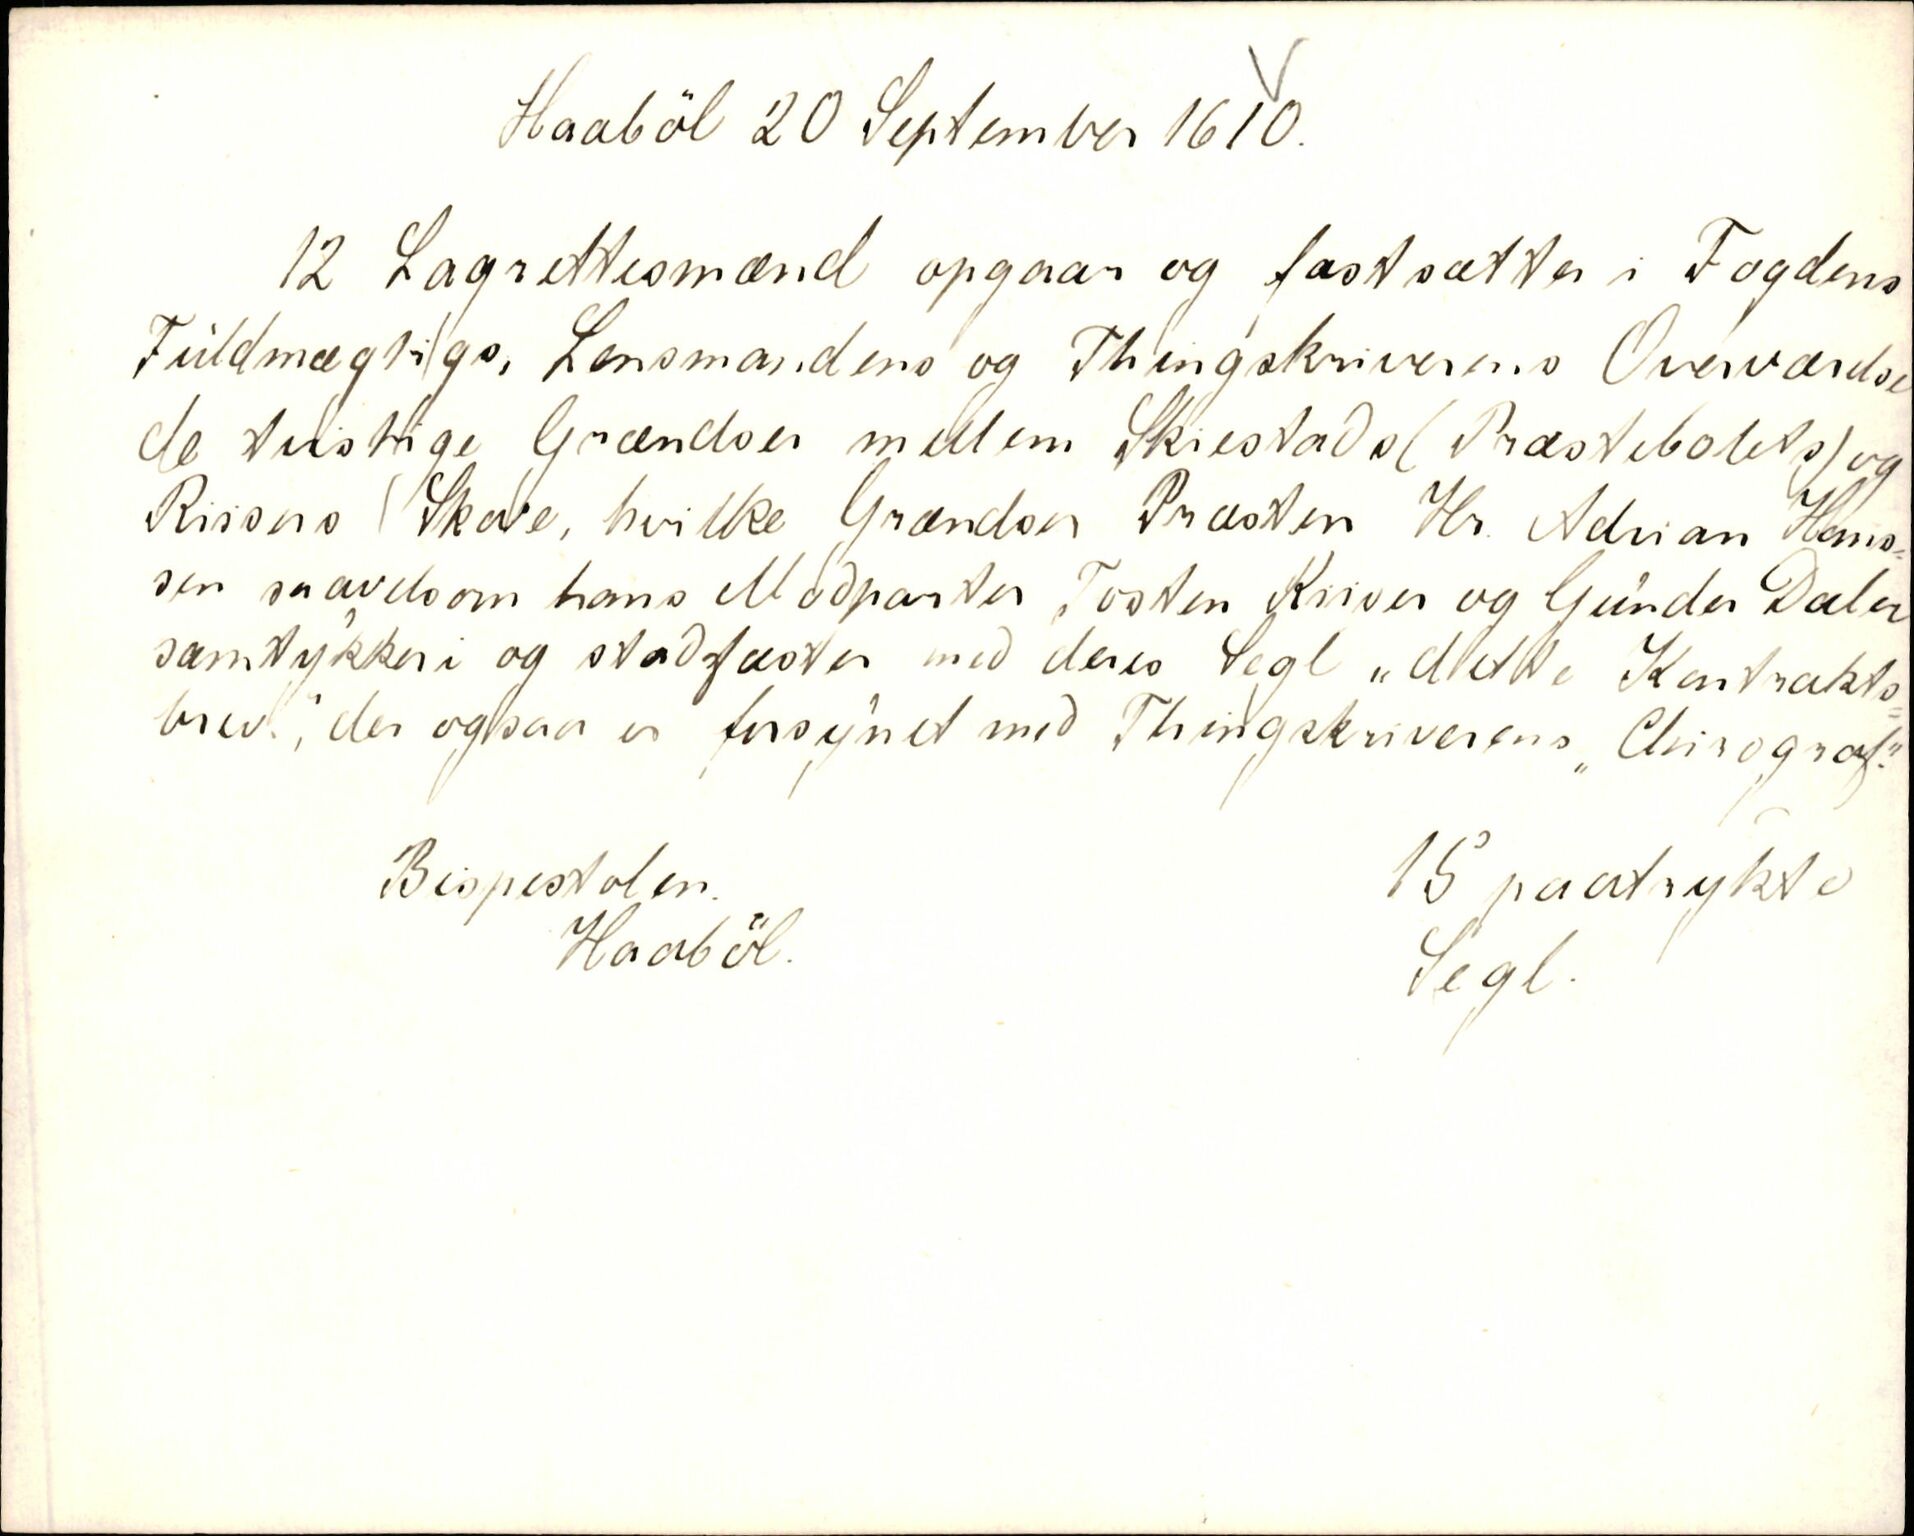 Haaböl 20 September 1610.
12 Lagrettesmænd opgaar og fastsætter i Fogdens
Fuldmægtigs, Lensmandens og Thingskriverens Overværelse
de tvistige Grændser mellem Skiestads (Præstebolets) og
Riisers Skove, hvilke Grændser Præsten Hr. Adrian Hans-
sen saavelsom hans Modparter Tosten Riiser og Gunder Dæler
samtykker i og stadfæster med deres Segl „dette Kontrakts-
brev", der ogsaa er forsynet med Thingskriverens „Chirograf."
Bispestolen.
Haaböl.
15 paatrykte
Segl.